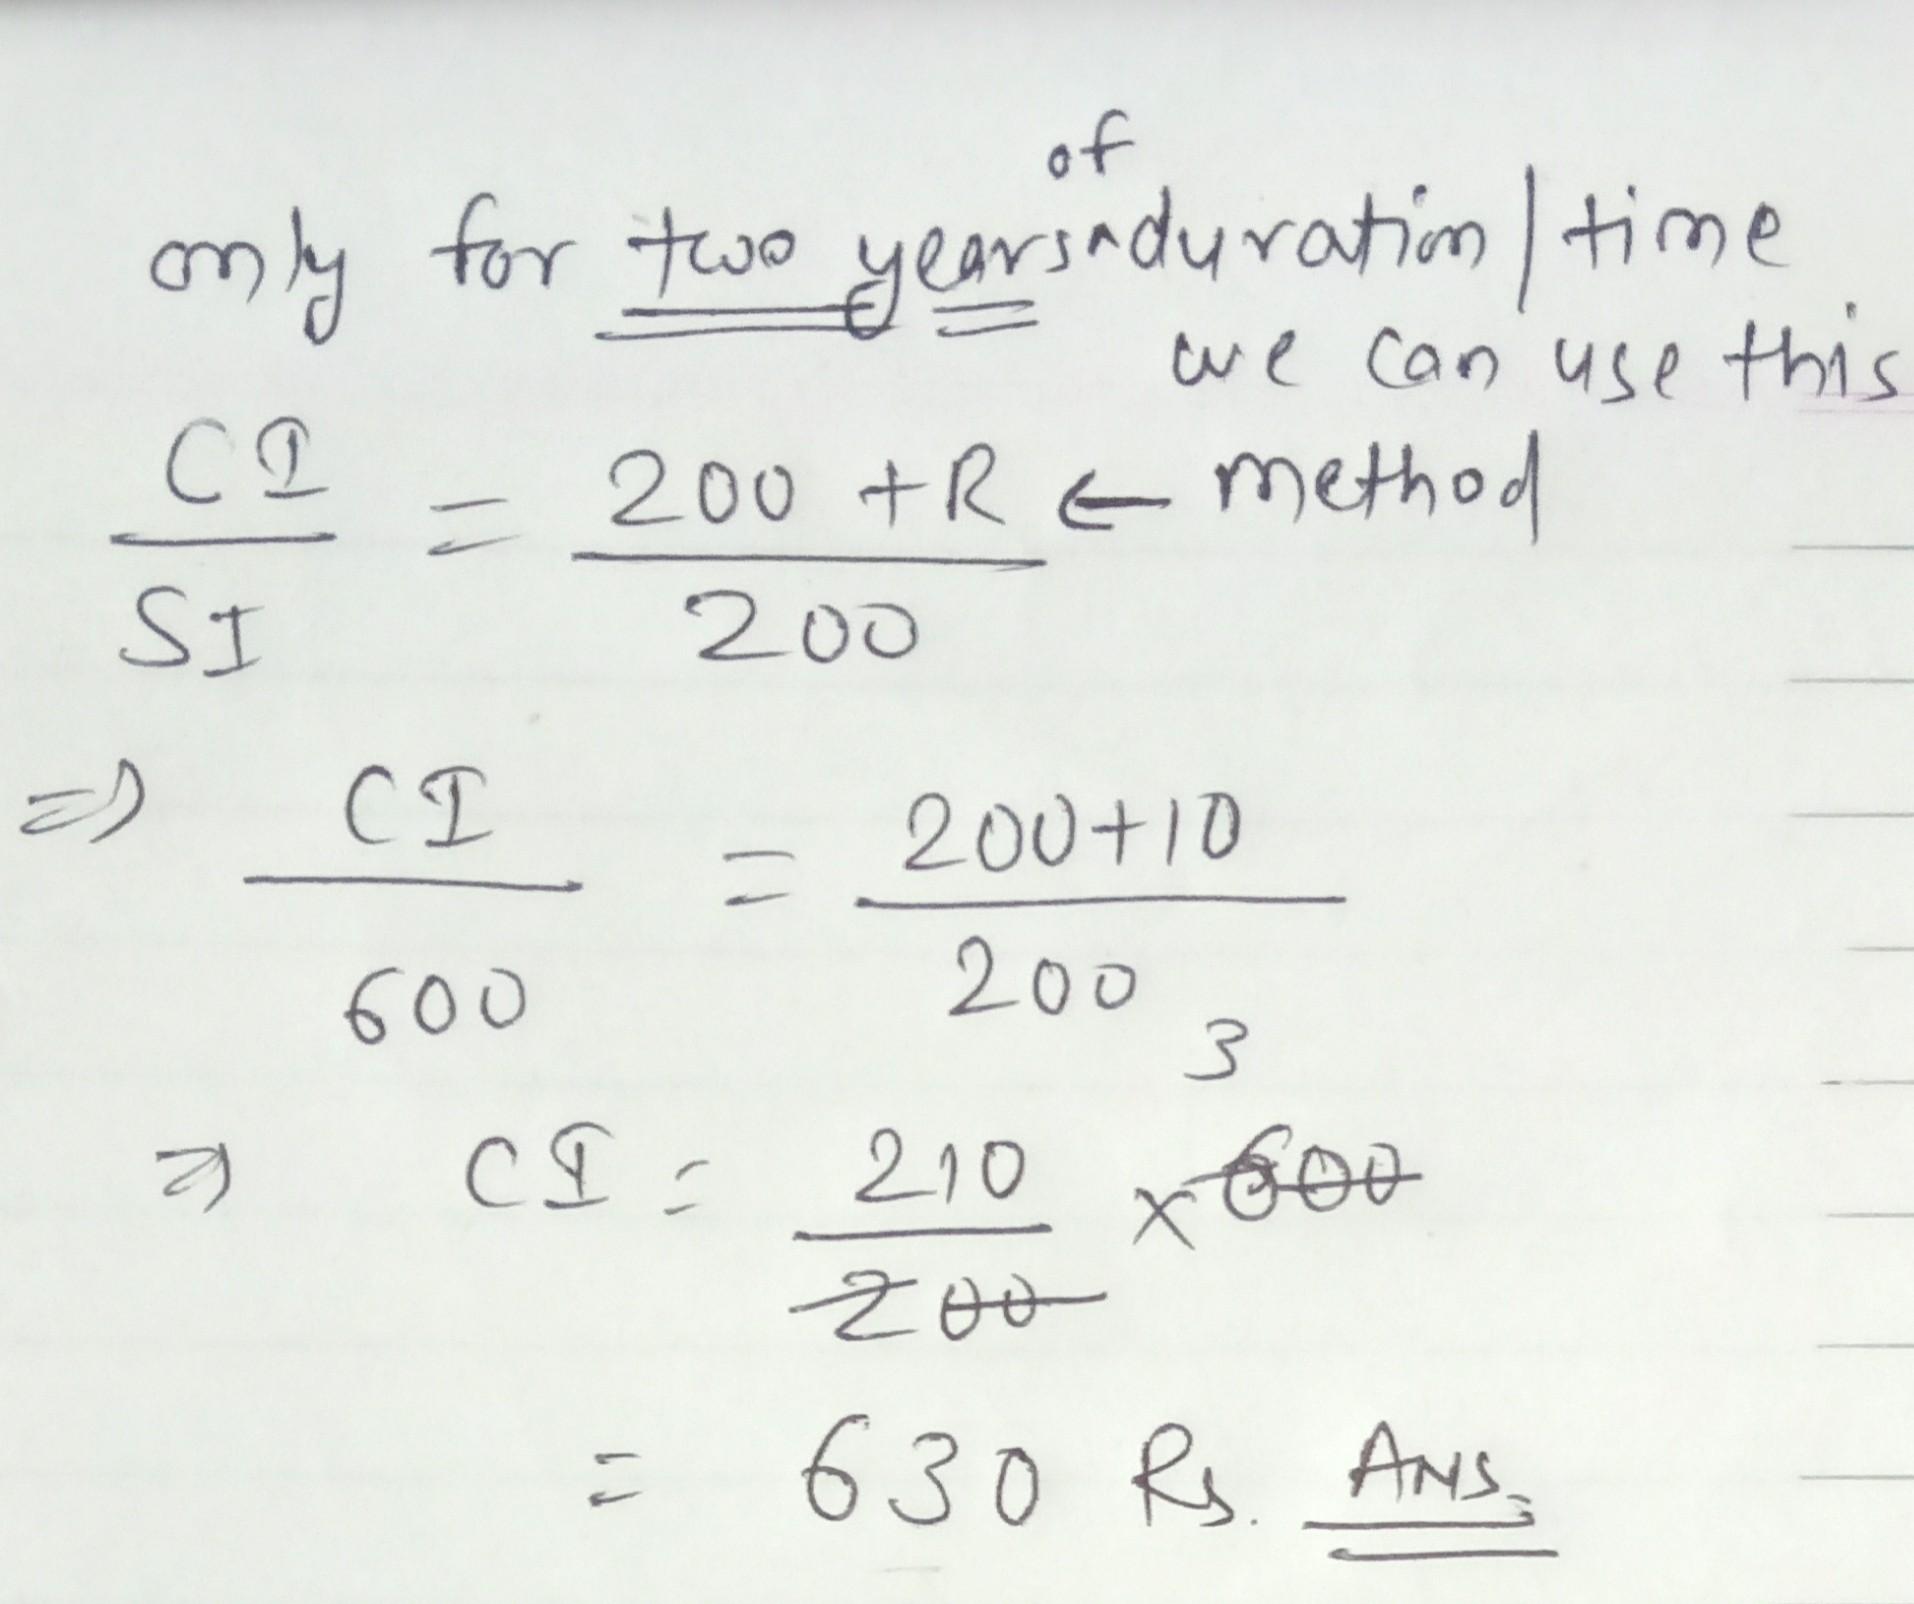 of
only for two years ^ duration / time
we can use this
CI / SI = 200 + R / 200 ← method
⇒ CI / 600 = 200+10 / 200
3
⇒ CI = 210 / 200 × 600
= 630 Rs. Ans.